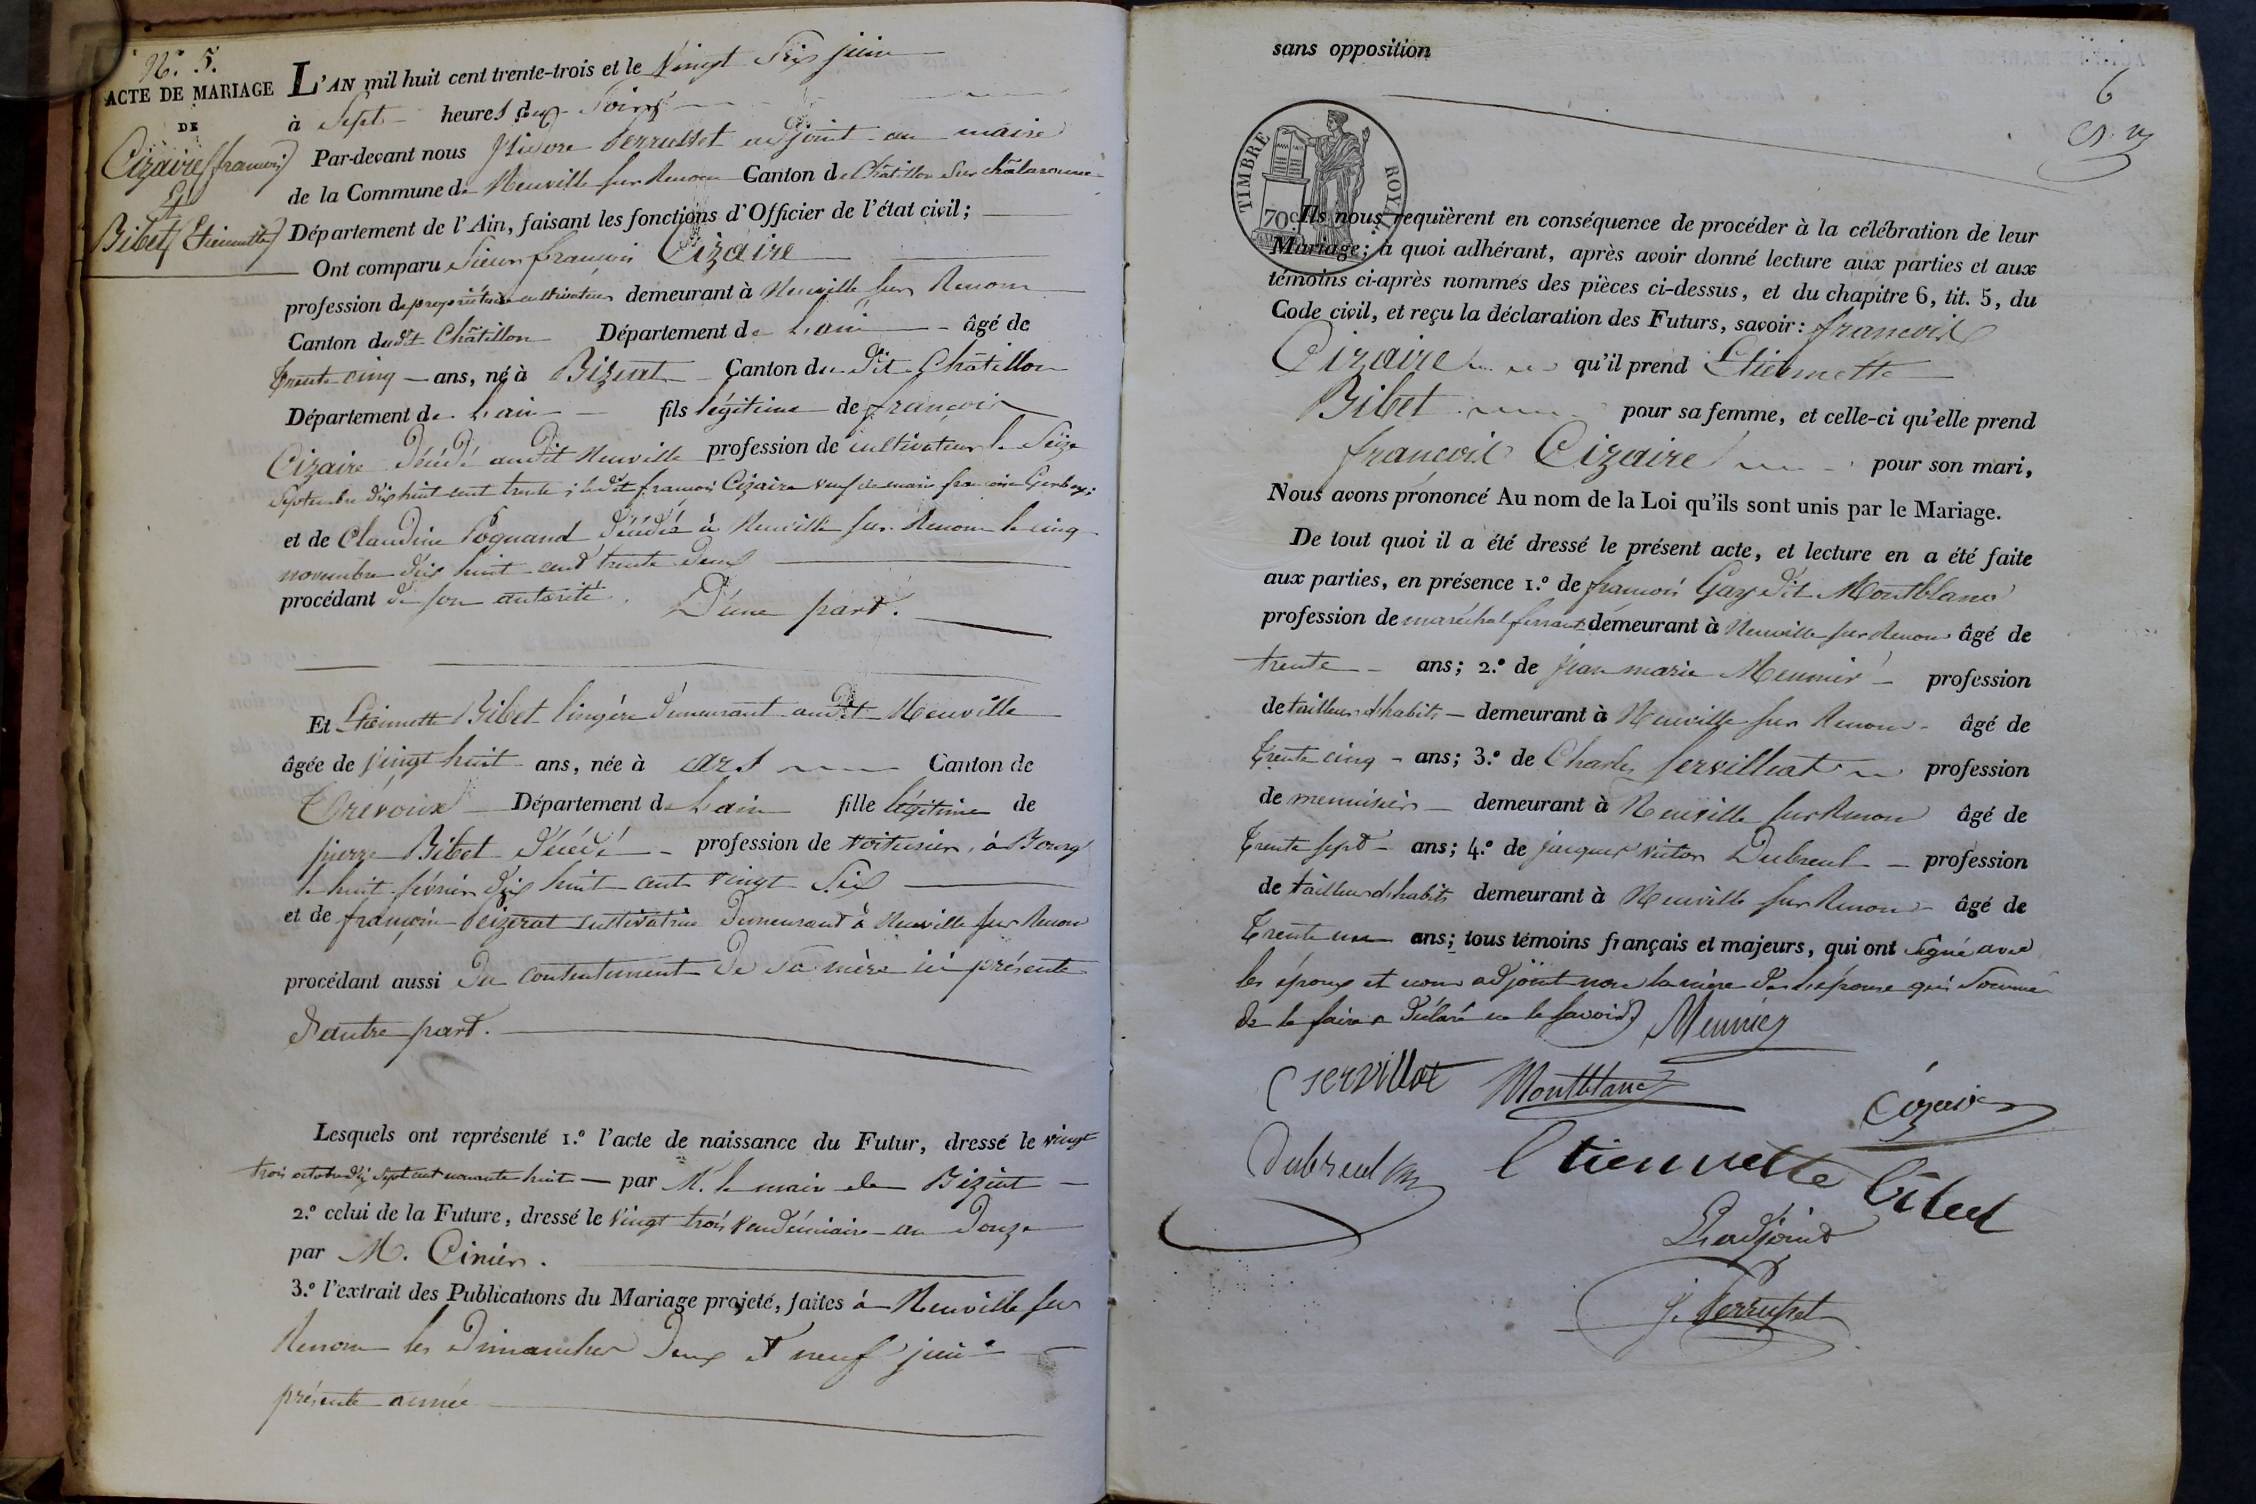 N.° 5.
ACTE DE MARIAGE
DE
Cizaire (francois)
Et
Bibet (Etiennette)
L'AN mil huit cent trente-trois et le Vingt Six juin
à Sept heures du Soir
Par-devant nous Isidore Perrusset adjoint au maire
de la Commune de Neuville sur Renom Canton de Châtillon sur châlaronne
Département de l'Ain, faisant les fonctions d'Officier de l'état civil;
Ont comparu Sieur françois Cizaire
profession de propriétaire cultivateur demeurant à Neuville sur Renom
Canton dudit Châtillon Département de L'ain âgé de
trente cinq ans, né à Biziat Canton du dit Châtillon
Département de L'ain fils légitime de françois
Cizaire décédé audit Neuville profession de cultivateur le Seize
Septembre dix huit cent trente; ledit francois Cizaire veuf de marie françoise
et de Claudine Poguand décédée à Neuville sur Renom le cinq
novembre dix huit cent trente deux
procédant de son autorité. D'une part.
Et Etiennette Bibet lingère demeurant audit Neuville
âgée de vingt huit ans, née à ars Canton de
Trévoux Département de L'ain fille légitime de
pierre Bibet décédé profession de voiturier, à Bourg
le huit février dix huit cent vingt Six
et de françoise Peizerat cultivatrice demeurant à Neuville sur Renom
procédant aussi du consentement de sa mère ici présente
D'autre part.
Lesquels ont représenté 1.° l'acte de naissance du Futur, dressé le vingt
trois octobre dix sept cent nonante huit par M. le maire de Biziat
2.° celui de la Future, dressé le vingt trois vendémiaire an Douze
par M. Cinier.
3.° l'extrait des Publications du Mariage projeté, faites à Neuville sur
Renom les Dimanches Deux et neuf juin
présente année
sans opposition
6
TIMBRE ROYAL
70c
Ils nous requièrent en conséquence de procéder à la célébration de leur
Mariage; à quoi adhérant, après avoir donné lecture aux parties et aux
témoins ci-après nommés des pièces ci-dessus, et du chapitre 6, tit. 5, du
Code civil, et reçu la déclaration des Futurs, savoir: francois
Cizaire qu'il prend Etiennette
Bibet pour sa femme, et celle-ci qu'elle prend
françois Cizaire pour son mari,
Nous avons prononcé Au nom de la Loi qu'ils sont unis par le Mariage.
De tout quoi il a été dressé le présent acte, et lecture en a été faite
aux parties, en présence 1.° de francois Gay dit Montblanc
profession de maréchal ferrant demeurant à Neuville sur Renom âgé de
trente ans; 2.° de jean marie Meunier profession
de tailleur d'habits demeurant à Neuville sur Renom âgé de
trente cinq ans; 3.° de Charles Servillat profession
de menuisier demeurant à Neuville sur Renom âgé de
trente sept ans; 4.° de jacques victor Dubreul profession
de tailleur d'habits demeurant à Neuville sur Renom âgé de
trente un ans; tous témoins français et majeurs, qui ont signé avec
les époux et nous adjoint non la mère de l'épouse qui Sommée
de le faire a déclaré ne le savoir Meunier
C servillat Montblanc Cizaire
Dubreul Etiennette bibet
L'adjoint
J. Perrusset